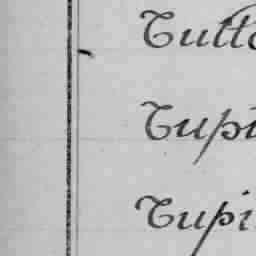 Tutt
Tupi
Tupi